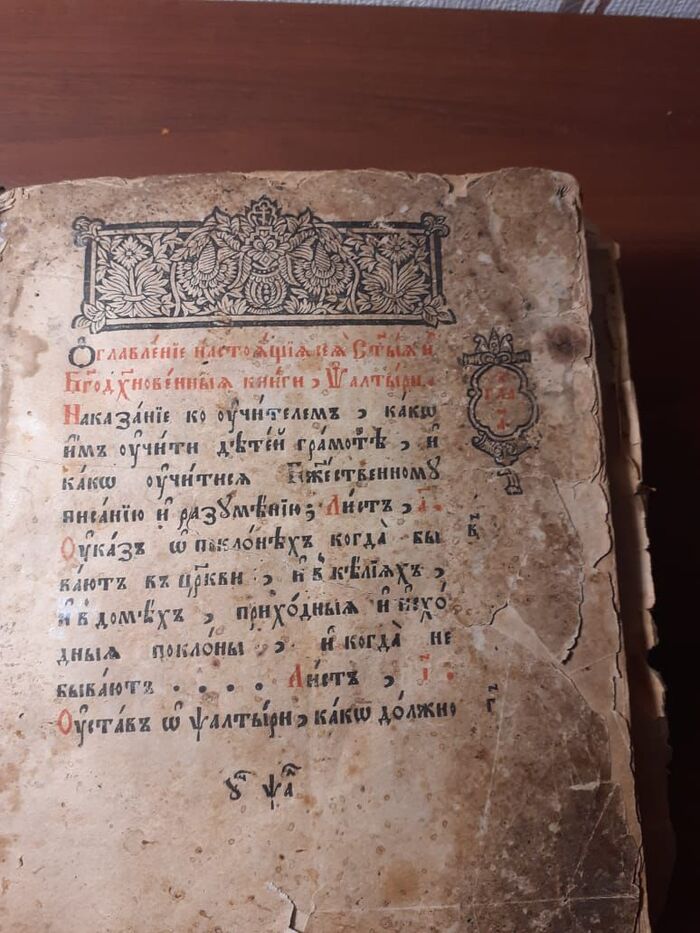 Ѻглавле́нїе настоѧ́щїѧ сеѧ̀ Ст҃ы́ѧ и҆
Бг҃одх҃нове́нныѧ кни́ги , Ѱалты́ри .
Наказа́нїе ко ѹ҆чи́телемъ , ка́кѡ
и҆̀мъ ѹ҆чи́ти дѣте́й гра́мотѣ , и҆
ка́кѡ ѹ҆чи́тисѧ Бж҃е́ственномꙋ
писа́нїю и҆ разꙋмѣ́нїю ; Ли́стъ , а҃ .
Ѹ҆ка́зъ ѡ҆ покло́нѣхъ когда̀ бы
ва́ютъ въ цр҃кви , и҆ в ке́лїѧхъ ,
и҆ в домѣ́хъ , прихо́дныѧ и҆ и҆схо́
дныѧ покло́ны , и҆ когда̀ не
быва́ютъ . . . . Ли́стъ , і҃ .
Ѹ҆ста́въ ѡ҆ ѱалты́ри , ка́кѡ до́лжно
глава
а҃
в҃
г҃